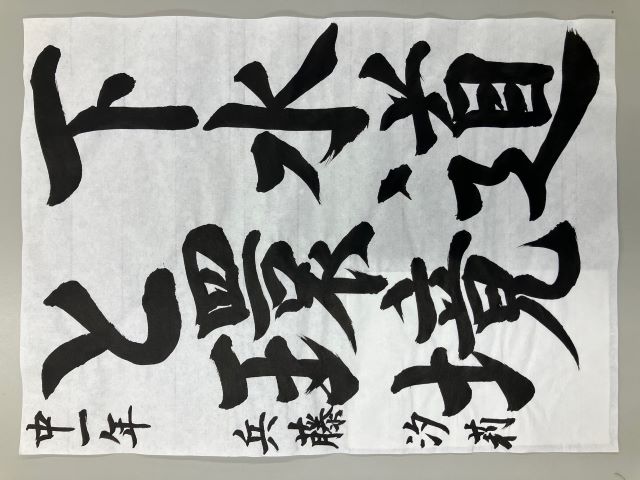 下水道
と環境
中一年 兵藤 汐莉